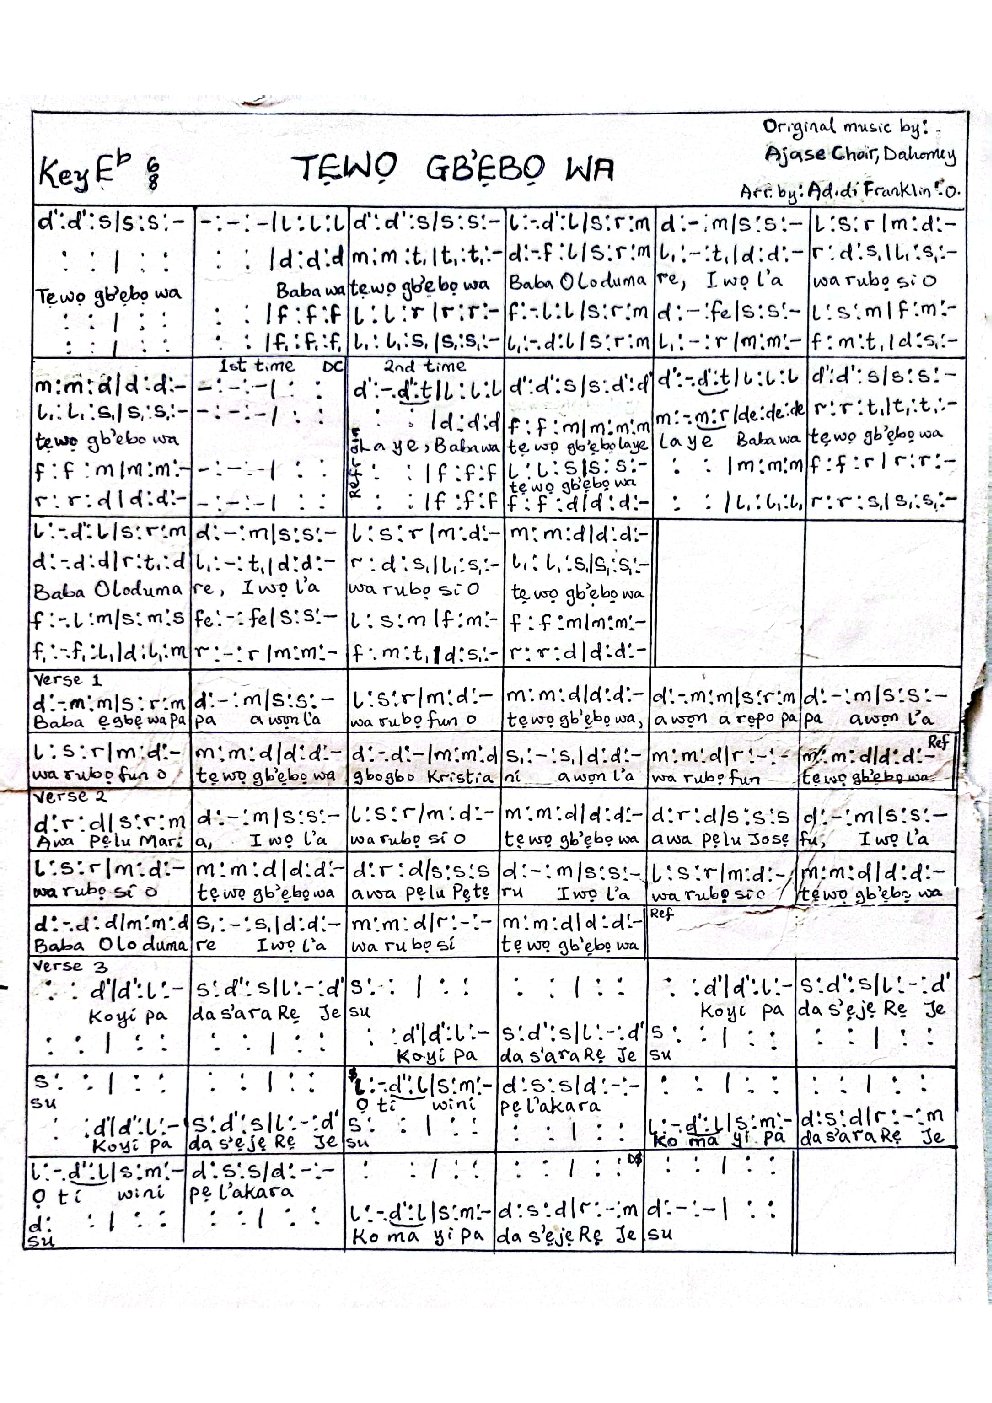 Original music by:
Ajase Choir, Dahomey
Key E♭ 6/8 TẸWỌ GB'ẸBỌ WA
Arr. by: Ad.di Franklin O.
d':d':s|s:s:- -:-:-|l:l:l d':d':s|s:s:- l:-.d':l|s:r:m d:-:m|s:s:- l:s:r|m:d:-
: : | : : : : |d:d:d m:m:t,|t,:t,:- d:-.f:l|s:r:m l,:-:t,|d:d:- r:d:s,|l,:s,:-
Tẹwọ gb'ẹbọ wa Baba wa tẹwọ gb'ẹbọ wa Baba Oloduma re, Iwọ l'a wa rubọ si O
: : | : : : : |f:f:f l:l:r|r:r:- f:-.l:l|s:r:m d:-:fe|s:s:- l:s:m|f:m:-
: : | : : : : |f,:f,:f, l,:l,:s,|s,:s,:- l,:-.d:l|s:r:m l,:-:r|m:m:- f:m:t,|d:s,:-
1st time DC 2nd time
m:m:d|d:d:- -:-:-| : : d':-.d':t|l:l:l d':d':s|s:d':d' d':-.d':t|l:l:l d':d':s|s:s:-
l,:l,:s,|s,:s,:- -:-:-| : : : : |d:d:d f:f:m|m:m:m m:-.m:r|de:de:de r:r:t,|t,:t,:-
tẹwọ gb'ẹbọ wa Refrain Laye, Baba wa tẹwọ gb'ẹbọ laye Laye Baba wa tẹwọ gb'ẹbọ wa
f:f:m|m:m:- -:-:-| : : : : |f:f:f l:l:s|s:s:- : : |m:m:m f:f:r|r:r:-
tẹwọ gb'ẹbọ wa
r:r:d|d:d:- -:-:-| : : : : |f:f:f f:f:d|d:d:- : : |l,:l,:l, r:r:s,|s,:s,:-
l:-.d':l|s:r:m d:-:m|s:s:- l:s:r|m:d:- m:m:d|d:d:-
d:-.d:d|r:t,:d l,:-:t,|d:d:- r:d:s,|l,:s,:- l,:l,:s,|s,:s,:-
Baba Oloduma re, Iwọ l'a wa rubọ si O tẹ wọ gb'ẹbọ wa
f:-.l:m|s:m:s fe:-:fe|s:s:- l:s:m|f:m:- f:f:m|m:m:-
f,:-.f,:l,|d:l,:m r:-:r|m:m:- f:m:t,|d:s,:- r:r:d|d:d:-
Verse 1
d:-.m:m|s:r:m d:-:m|s:s:- l:s:r|m:d:- m:m:d|d:d:- d:-.m:m|s:r:m d:-:m|s:s:-
Baba ẹgbẹ wa pa pa awọn l'a wa rubọ fun O tẹwọ gb'ẹbọ wa, awọn arẹpo pa pa awọn l'a
l:s:r|m:d:- m:m:d|d:d:- d:-.d:-|m:m:d s,:-:s,|d:d:- m:m:d|r:-:- m:m:d|d:d:- Ref
wa rubọ fun O tẹwọ gb'ẹbọ wa gbogbo Kristia ni awọn l'a wa rubọ fun tẹwọ gb'ẹbọ wa
Verse 2
d:r:d|s:r:m d:-:m|s:s:- l:s:r|m:d:- m:m:d|d:d:- d:r:d|s:s:s d:-:m|s:s:-
Awa pẹlu Mari a, Iwọ l'a wa rubọ sí O tẹwọ gb'ẹbọ wa awa pẹlu Josẹ fu, Iwọ l'a
l:s:r|m:d:- m:m:d|d:d:- d:r:d|s:s:s d:-:m|s:s:- l:s:r|m:d:- m:m:d|d:d:-
wa rubọ sí O tẹwọ gb'ẹbọ wa awa pẹlu Pẹtẹ ru Iwọ l'a wa rubọ si O tẹwọ gb'ẹbọ wa
d:-.d:d|m:m:d s,:-:s,|d:d:- m:m:d|r:-:- m:m:d|d:d:- Ref
Baba Oloduma re Iwọ l'a wa rubọ sí tẹ wọ gb'ẹbọ wa
Verse 3
: : d'|d':l:- s:d':s|l:-:d' s: : | : : : : | : : : : d'|d':l:- s:d':s|l:-:d'
Koyí pa da s'ara Rẹ Je su Koyí pa da s'ẹjẹ Rẹ Je
: : | : : : : | : : : : d'|d':l:- s:d':s|l:-:d' s: : | : : : : | : :
Koyí pa da s'ara Rẹ Je su
s: : | : : : : | : : l:-.d':l|s:m:- d:s:s|d:-:- : : | : : : : | : :
su Ọ tí wini pẹ l'akara
: : d'|d':l:- s:d':s|l:-:d' s: : | : : : : | : : l:-.d':l|s:m:- d:s:d|r:-:m
Koyi pa da s'ẹjẹ Rẹ Je su Ko ma yi pa da s'ara Rẹ Je
l:-.d':l|s:m:- d:s:s|d:-:- : : | : : : : | : : D$ : : | : :
Ọ tí wini pẹ l'akara
d: : | : : : : | : : l:-.d':l|s:m:- d:s:d|r:-:m d:-:-| : :
su Ko ma yi pa da s'ẹjẹ Rẹ Je su